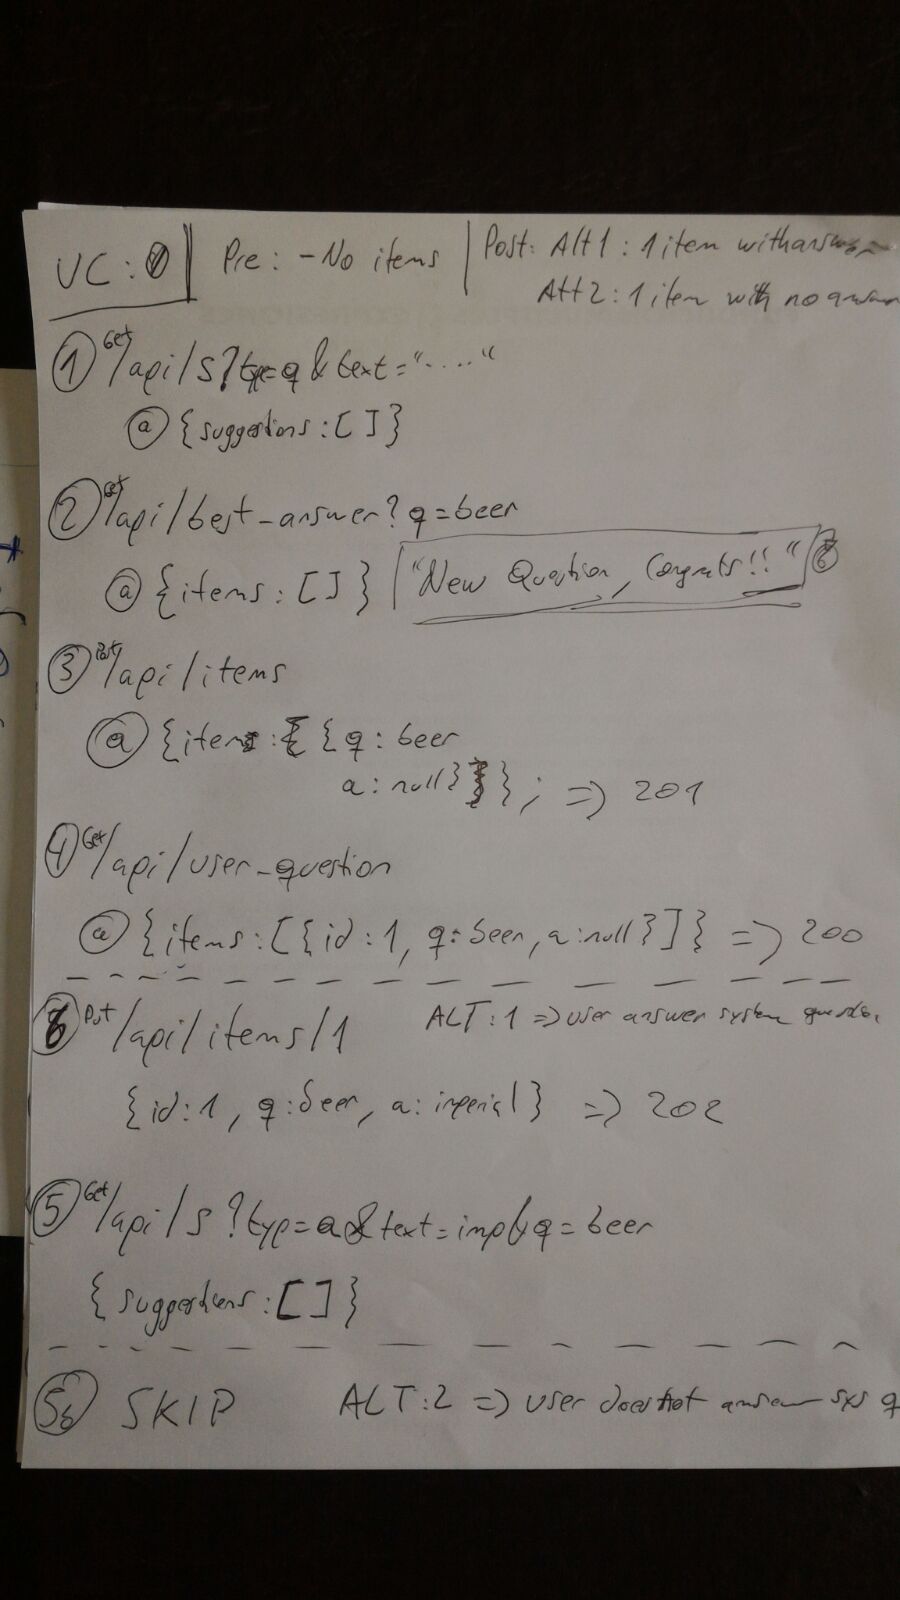 UC: 0 | Pre: - No items | Post: Alt1: 1 item with answer
Alt2: 1 item with no answer
① Get /api/s?type=q&text="....."
ⓐ {suggestions:[]}
② Get /api/best-answer?q=beer
ⓐ {items:[]} "New Question, Congrats!!" ⑥
③ Post /api/items
ⓐ {item: {q: beer
a: null}}; => 201
④ Get /api/user-question
ⓐ {items:[{id:1, q:beer, a:null}]} => 200
⑥ Post /api/items/1 ALT:1 => user answer system question
{id:1, q:beer, a:imperial} => 202
⑤ Get /api/s?type=a&text=imp&q=beer
{suggestions:[]}
5b SKIP ALT:2 => user does not answer sys q